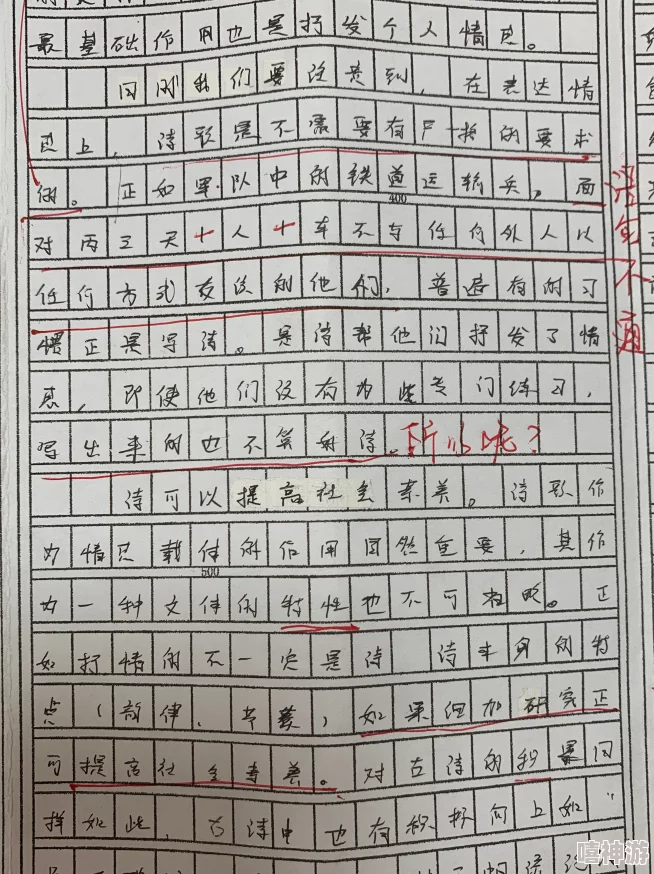 最基础作用也是抒发个人情思。
同时我们要注意到，在表达情
思上，诗歌是不需要有严格的要求
的。正如军队中的铁道运输兵，面
400
对两三天十人十车不与任何外人以
任何方式交谈的他们，普遍有的习
惯正是写诗。是诗帮他们抒发了情
思，即使他们没有为此专门练习，
写出来的也不算好诗。所以呢？
语句不通
诗可以提高社会素养。诗歌作
为情思载体的作用固然重要，其作
500
为一种文体的特性也不可忽略。正
如抒情的不一定是诗 诗本身的特
点（韵律、），如果但加研究正
可提高社会素养。对古诗的积累同
样如此，古诗中也有积极向上如“
嘻神游